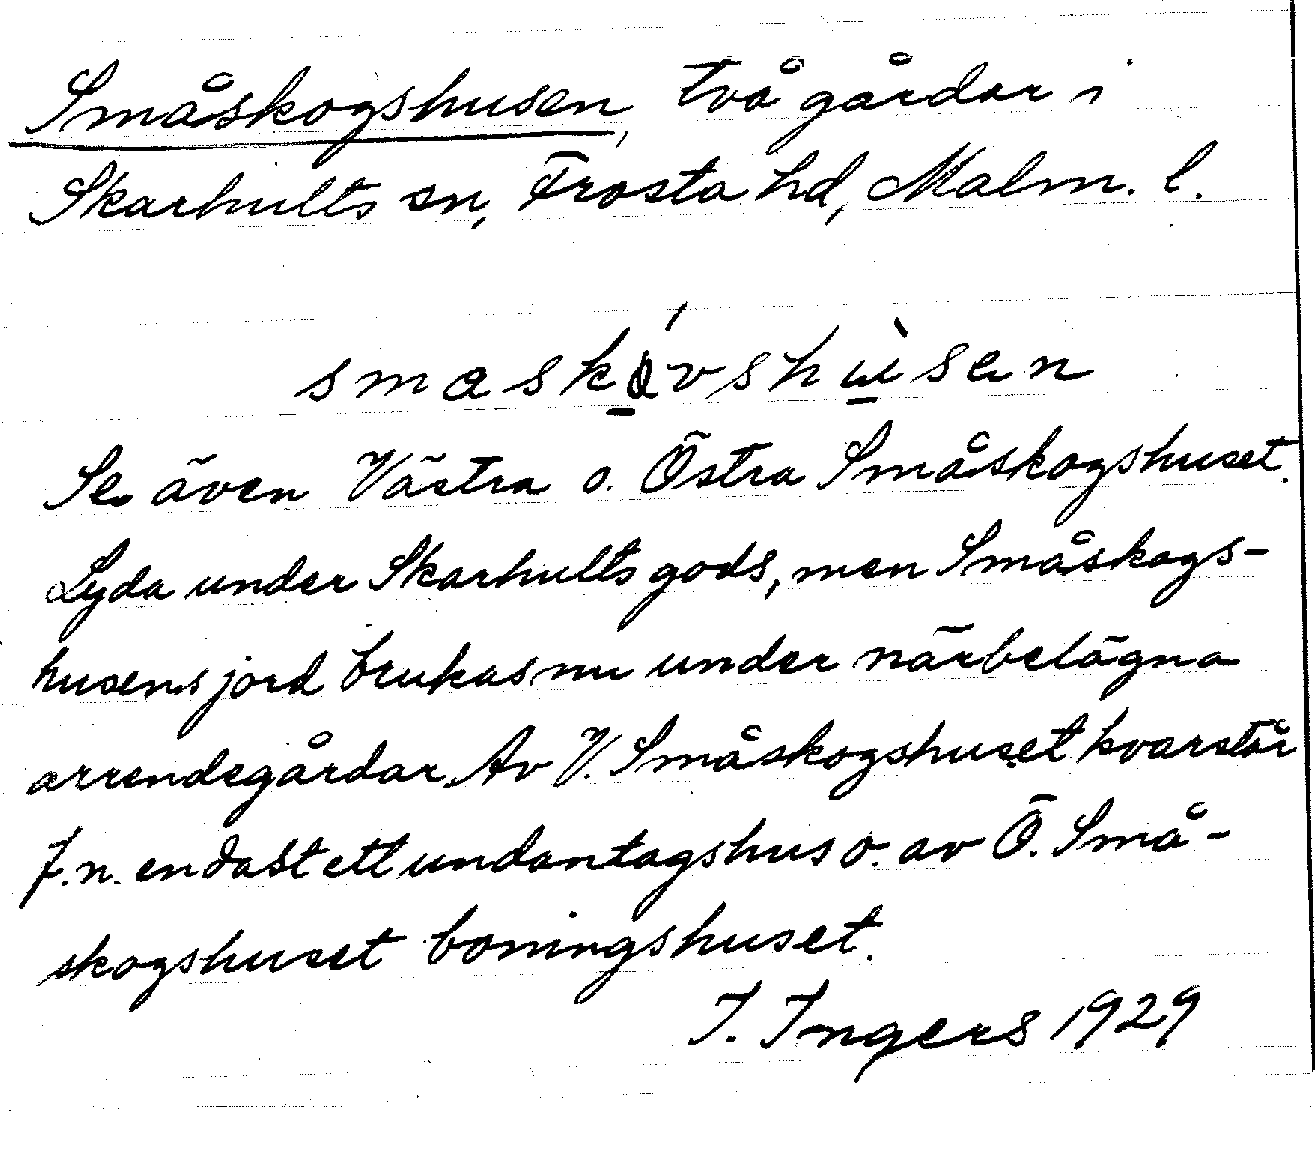 Småskogshusen, två gårdar i
Skarhults sn, Frosta hd, Malm. l.
Se även Västra o. Östra Småskogshuset.
Lyda under Skarhults gods, men Småskogs-
husens jord brukas nu under närbelägna
arrendegårdar. Av V. Småskogshuset kvarstår
f.n. endast ett undantagshus o. av Ö. Små-
skogshuset boningshuset.
I. Ingers 1929